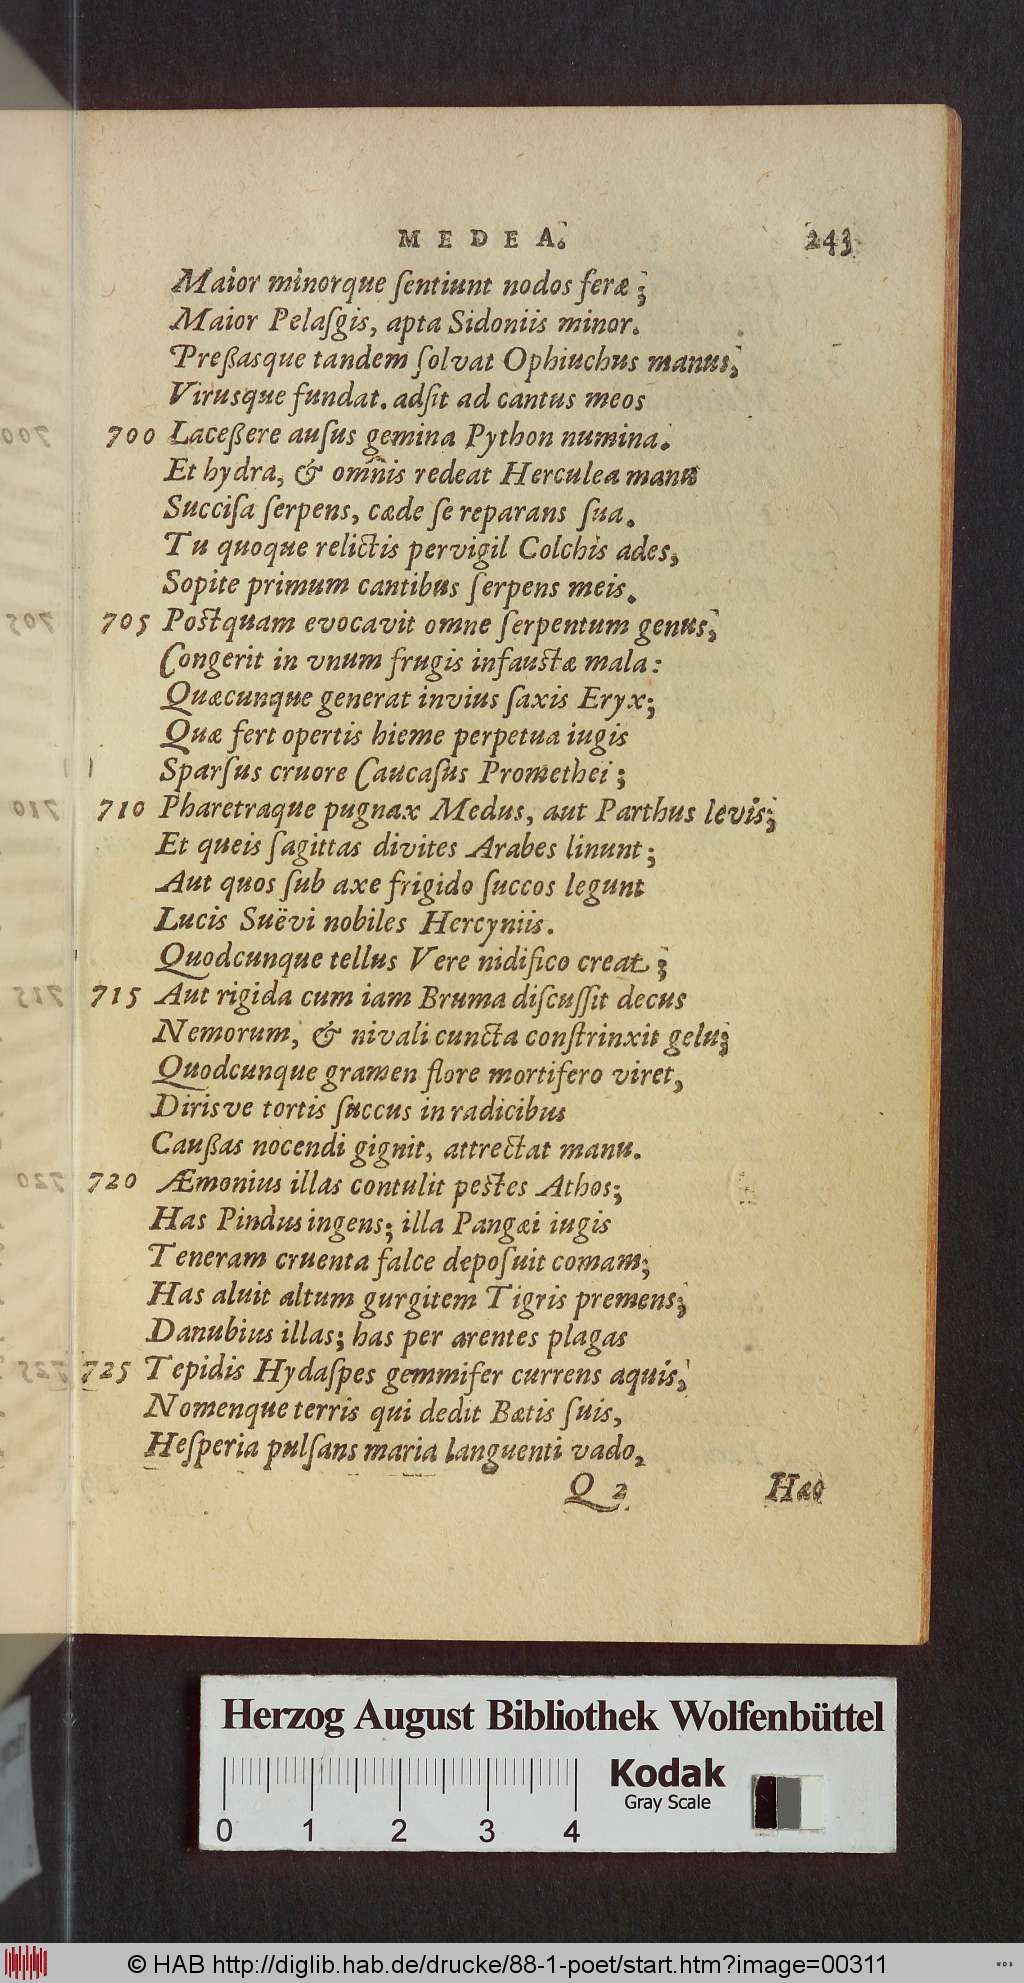 MEDEA. 243
Maior minorque ſentiunt nodos feræ;
Maior Pelaſgis, apta Sidoniis minor.
Preßasque tandem ſolvat Ophiuchus manus,
Virusque fundat. adſit ad cantus meos
700 Laceßere auſus gemina Python numina.
Et hydra, & omnis redeat Herculea manu
Succiſa ſerpens, cæde ſe reparans ſua.
Tu quoque relictis pervigil Colchis ades,
Sopite primum cantibus ſerpens meis.
705 Postquam evocavit omne ſerpentum genus,
Congerit in vnum frugis infaustæ mala:
Quæcunque generat invius ſaxis Eryx;
Quæ fert opertis hieme perpetua iugis
Sparſus cruore Caucaſus Promethei;
710 Pharetraque pugnax Medus, aut Parthus levis;
Et queis ſagittas divites Arabes linunt;
Aut quos ſub axe frigido ſuccos legunt
Lucis Suëvi nobiles Hercyniis.
Quodcunque tellus Vere nidifico creat;
715 Aut rigida cum iam Bruma diſcuſſit decus
Nemorum, & nivali cuncta conſtrinxit gelu;
Quodcunque gramen flore mortifero viret,
Dirisve tortis ſuccus in radicibus
Caußas nocendi gignit, attrectat manu.
720 Æmonius illas contulit pestes Athos;
Has Pindus ingens; illa Pangæi iugis
Teneram cruenta falce depoſuit comam;
Has aluit altum gurgitem Tigris premens;
Danubius illas; has per arentes plagas
725 Tepidis Hydaſpes gemmifer currens aquis,
Nomenque terris qui dedit Bætis ſuis,
Heſperia pulſans maria languenti vado,
Q 2 Hæc
Herzog August Bibliothek Wolfenbüttel
Kodak
Gray Scale
0 1 2 3 4
© HAB http://diglib.hab.de/drucke/88-1-poet/start.htm?image=00311